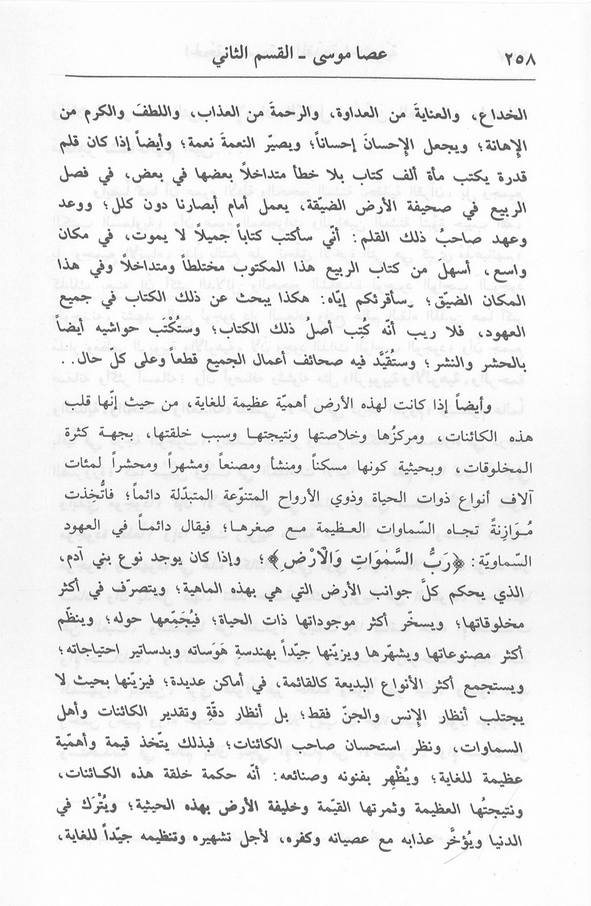 ٢٥٨ عصا موسى ـ القسم الثاني
الخداع، والعنايةَ من العداوة، والرحمةَ من العذاب، واللطفَ والكرم من
الإهانة؛ ويجعل الإحسانَ إحساناً؛ ويصيّر النعمةَ نعمة؛ وأيضاً إذا كان قلم
قدرة يكتب مأة ألف كتاب بلا خطأ متداخلاً بعضها في بعض، في فصل
الربيع في صحيفة الأرض الضيّقة، يعمل أمام أبصارنا دون كلل؛ ووعد
وعهد صاحبُ ذلك القلم: أنّي سأكتب كتاباً جميلاً لا يموت، في مكان
واسع، أسهلَ من كتاب الربيع هذا المكتوب مختلطاً ومتداخلاً وفي هذا
المكان الضيّق؛ وسأقرئكم إيّاه: هكذا يبحث عن ذلك الكتاب في جميع
العهود، فلا ريب أنّه كُتِب أصلُ ذلك الكتاب؛ وستُكْتَب حواشيه أيضاً
بالحشر والنشر؛ وستُقَيَّد فيه صحائف أعمال الجميع قطعاً وعلى كل حال...
وأيضاً إذا كانت لهذه الأرض أهميّة عظيمة للغاية، من حيث إنّها قلب
هذه الكائنات، ومركزُها وخلاصتها ونتيجتها وسبب خلقتها، بجهة كثرة
المخلوقات، وبحيثية كونها مسكناً ومنشأ ومصنعاً ومشهراً ومحشراً لمئات
آلاف أنواع ذوات الحياة وذوي الأرواح المتنوّعة المتبدّلة دائماً؛ فاتُّخِذت
مُوَازِنةً تجاه السّماوات العظيمة مع صغرها؛ فيقال دائماً في العهود
السماويّة: ﴿رَبُّ السَّمٰوَاتِ وَالْاَرْضِ﴾؛ وإذا كان يوجد نوع بني آدم،
الذي يحكم كلَّ جوانب الأرض التي هي بهذه الماهية؛ ويتصرّف في أكثر
مخلوقاتها؛ ويسخّر أكثر موجوداتها ذات الحياة؛ فيُجَمِّعها حوله؛ وينظّم
أكثر مصنوعاتها ويشهّرها ويزيّنها جيّداً بهندسةِ هَوَساته وبدساتير احتياجاته؛
ويستجمع أكثر الأنواع البديعة كالقائمة، في أماكن عديدة؛ فيزيّنها بحيث لا
يجتلب أنظار الإنس والجنّ فقط؛ بل أنظار دقّةِ وتقديرِ الكائنات وأهل
السماوات، ونظر استحسان صاحب الكائنات؛ فبذلك يتّخذ قيمة وأهمّية
عظيمة للغاية؛ ويُظْهِر بفنونه وصنائعه: أنّه حكمة خلقة هذه الكائنات،
ونتيجتُها العظيمة وثمرتها القيّمة وخليفة الأرض بهذه الحيثية؛ ويُتْرَك في
الدنيا ويُؤخَّر عذابه مع عصيانه وكفره، لأجل تشهيره وتنظيمه جيّداً للغاية،